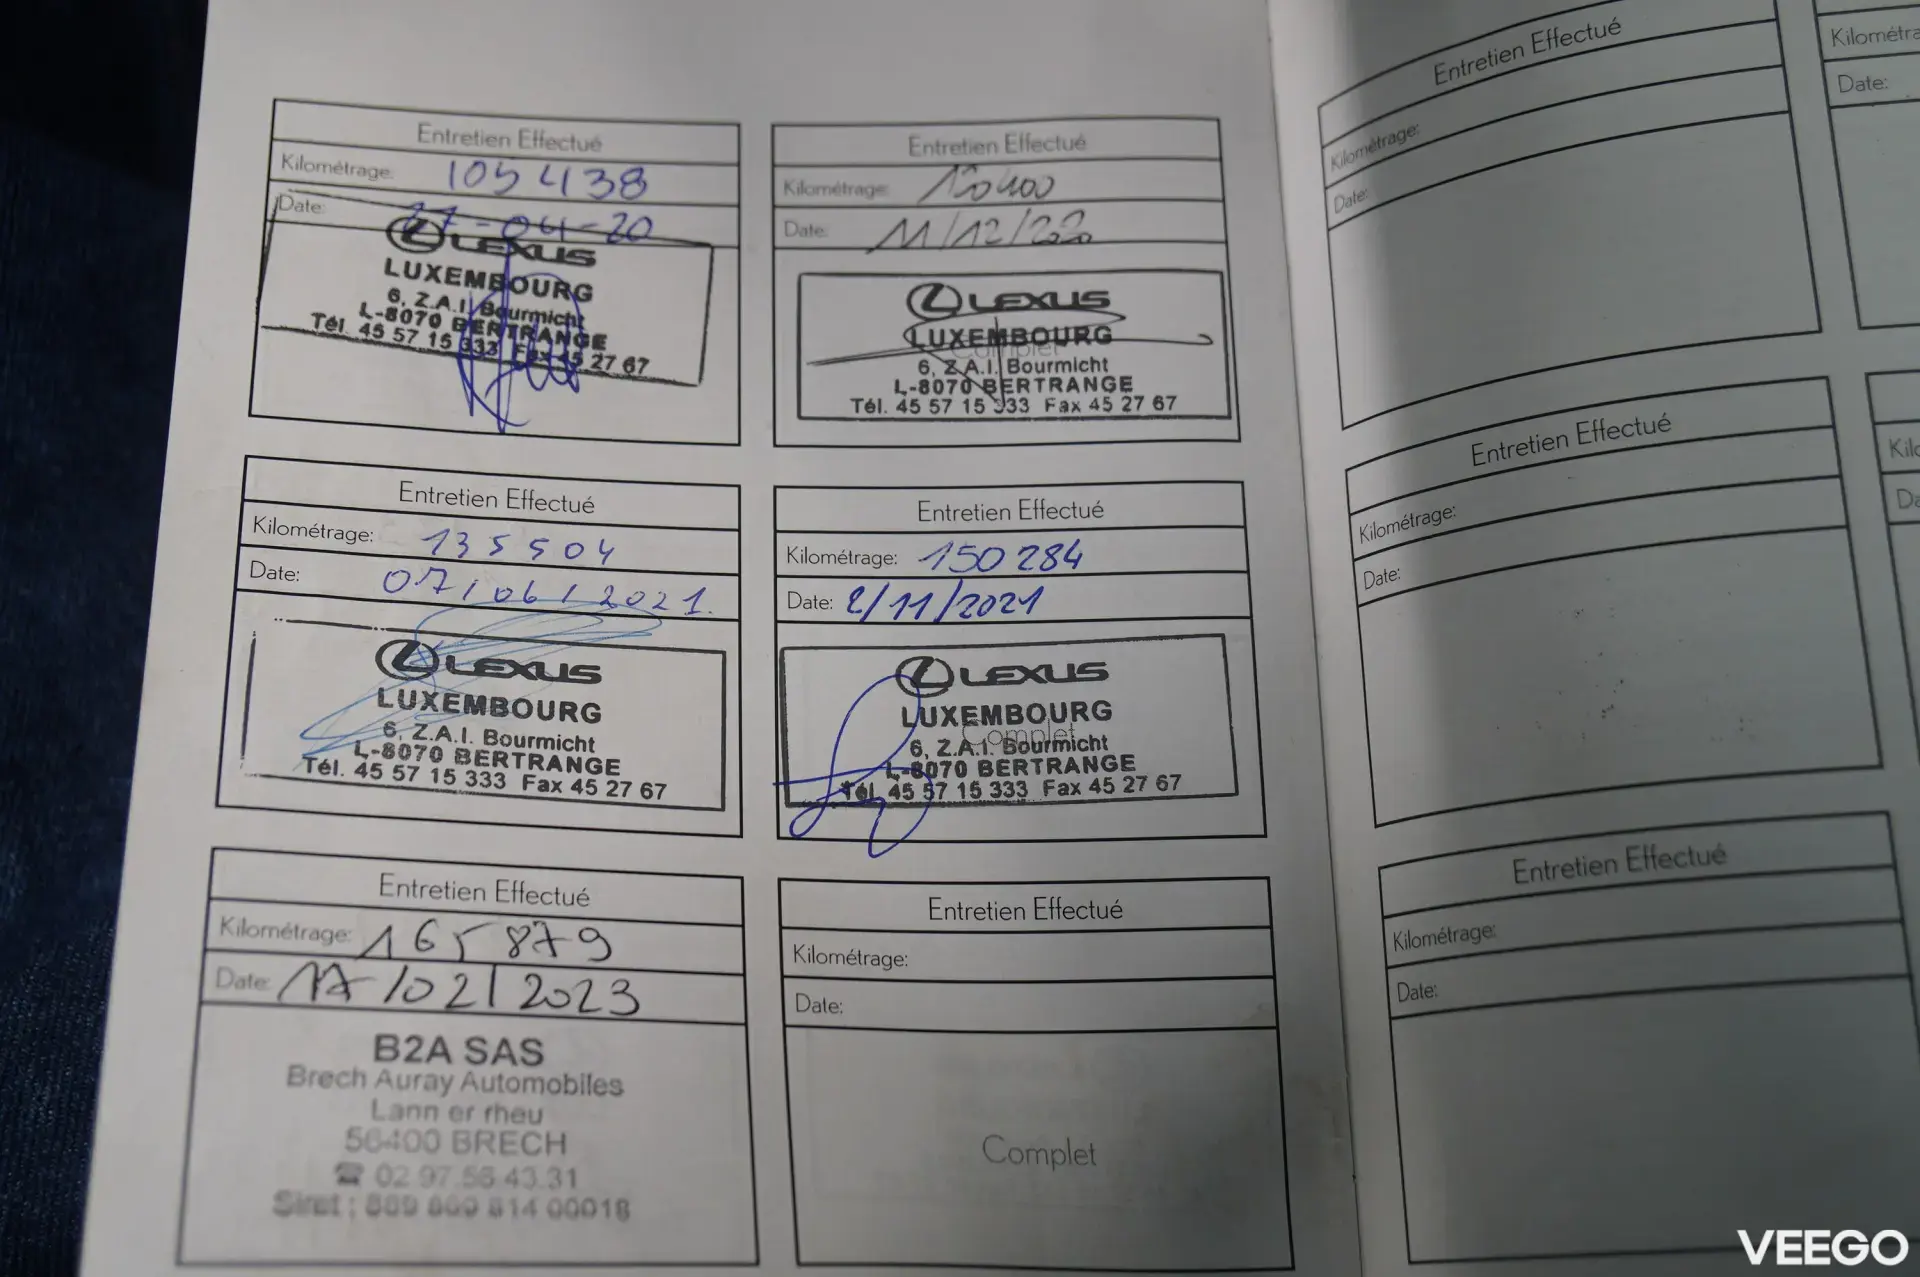 Entretien Effectué
Kilométrage: 105 438
Date: 27-04-20
LEXUS
LUXEMBOURG
6, Z.A.I. Bourmicht
L-8070 BERTRANGE
Tél. 45 57 15 333 Fax 45 27 67
Entretien Effectué
Kilométrage: 120400
Date: 11/12/2020
LEXUS
LUXEMBOURG
Complet
6, Z.A.I. Bourmicht
L-8070 BERTRANGE
Tél. 45 57 15 333 Fax 45 27 67
Entretien Effectué
Kilométrage: 135504
Date: 07/06/2021.
LEXUS
LUXEMBOURG
6, Z.A.I. Bourmicht
L-8070 BERTRANGE
Tél. 45 57 15 333 Fax 45 27 67
Entretien Effectué
Kilométrage: 150 284
Date: 2/11/2021
LEXUS
LUXEMBOURG
Complet
6, Z.A.I. Bourmicht
L-8070 BERTRANGE
Tél. 45 57 15 333 Fax 45 27 67
Entretien Effectué
Kilométrage: 165 879
Date: 17/02/2023
B2A SAS
Brech Auray Automobiles
Lann er rheu
56400 BRECH
☎ 02.97.56.43.31
Siret : 00018
Entretien Effectué
Kilométrage:
Date:
Complet
Entretien Effectué
Kilométrage:
Date:
Entretien Effectué
Kilométrage:
Date:
Entretien Effectué
Kilométrage:
Date:
Kilométra
Date:
Kilo
Da
VEEGO